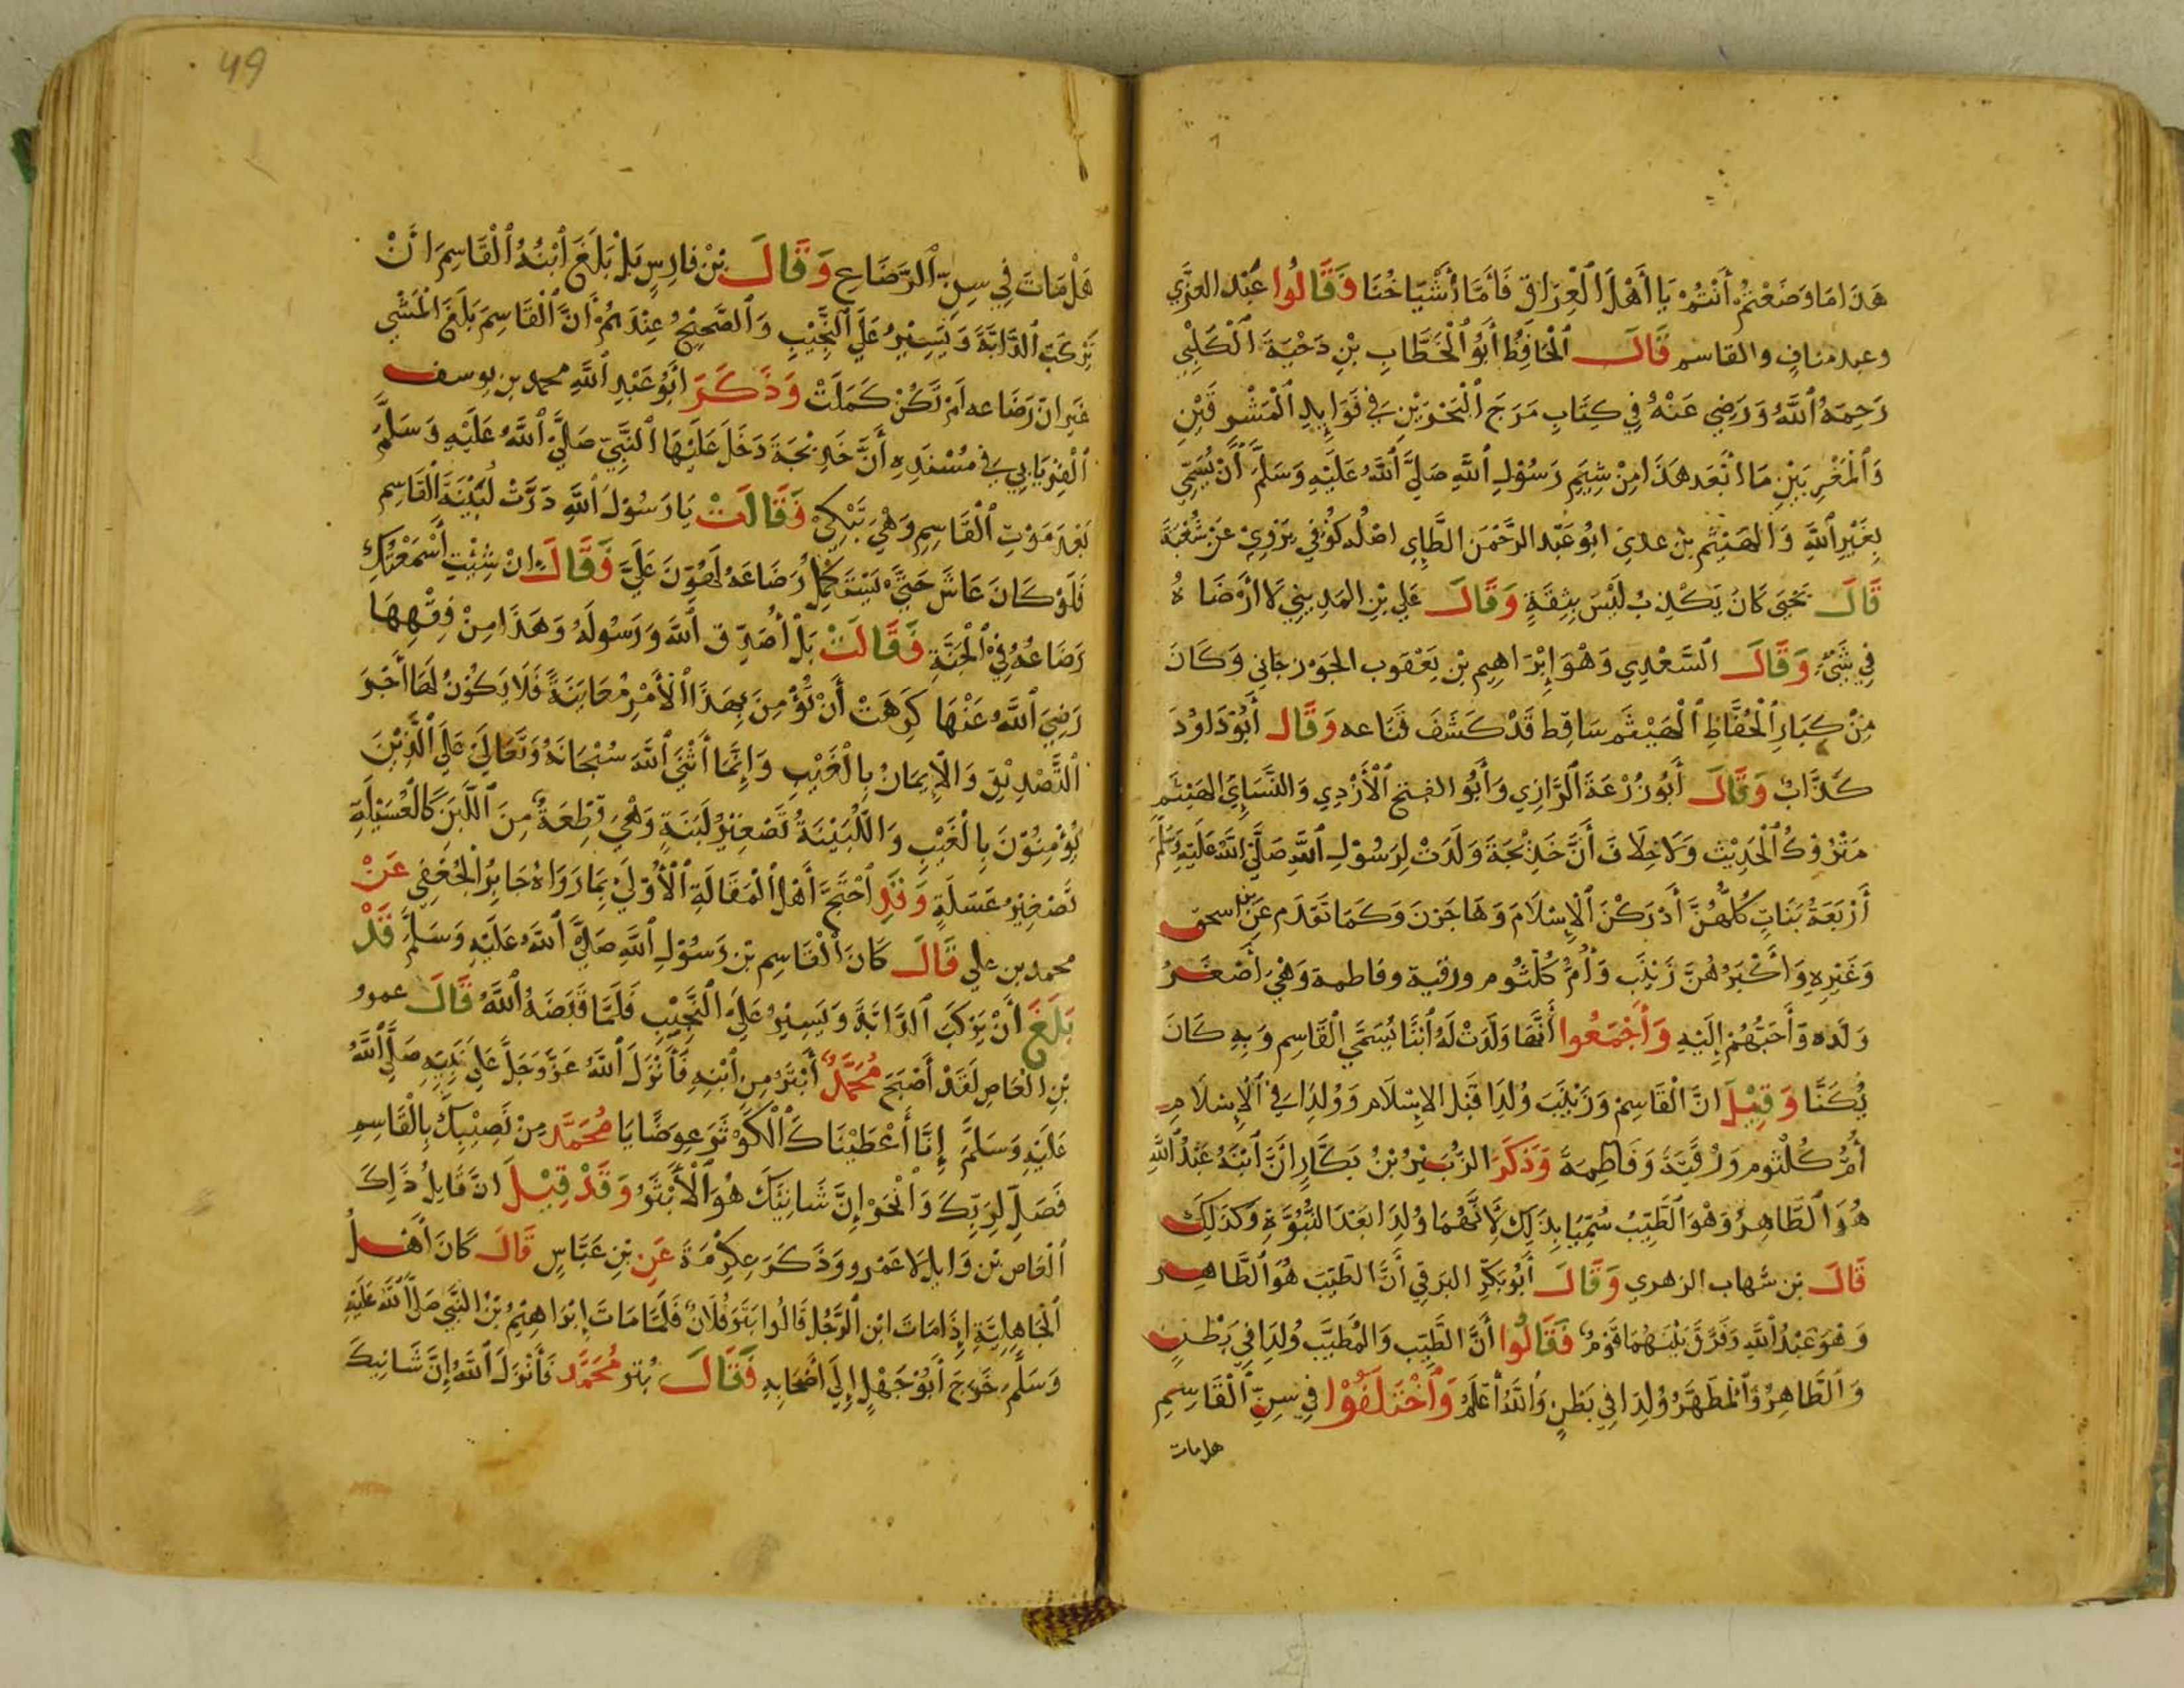 هَذَا مَا وَضَعْتُمْ أَنْتُمْ يَا أَهْلَ الْعِرَاقِ فَأَمَّا أَشْيَاخُنَا وَقَالُوا عَبْد العزي
وعبد مناف والقاسم قَالَ الْحَافِظُ أَبُو الْخَطَّابِ بْنِ دَحْيَةَ الْكَلْبِي
رَحِمَهُ اللَّهُ وَرَضِي عَنْهُ فِي كِتَابِ مَرَجَ الْبَحْرَيْنِ فِي فَوَايِدِ الْمَشْرِقَيْنِ
وَالْمَغْرِبَيْنِ مَا أَبْعَد هَذَا مِنْ شِيَمِ رَسُولِ اللَّهِ صَلَّى اللَّهُ عَلَيْهِ وَسَلَّمَ أَنْ يُسَمِّي
بِغَيْرِ اللَّهِ وَالْهَيْثَم بْن عدي ابُو عَبْد الرَّحْمَنِ الطَّايِ اصْلُه كُوفي يَرْوِي عَنْ شُعْبَةَ
قَالَ يَحْيَى كَانَ يَكْذِبُ لَيْسَ بِثِقَةٍ وَقَالَ عَلي بْنِ المَدِينِي لَا أَرْضَاهُ
فِي شَيْءٍ وَقَالَ السَّعْدِي وَهُوَ إِبْرَاهِيم بْن يَعْقوب الجَوْزجَاني وَكَانَ
مِنْ كِبَارِ الْحُفَّاظِ الْهَيْثَم سَاقِط قَدْ كَشَفَ قَنَاعه وَقَالَ أَبُو دَاوُدَ
كَذَّابٌ وَقَالَ أَبُو زُرْعَةَ الرَّازِي وَأَبُو الفتح الْأَزْدِي وَالنَّسَايِ الهَيْثَم
مَتْرُوكُ الْحَدِيْث وَلَا خِلَافَ أَنَّ خَدِيْجَةَ وَلَدَتْ لِرَسُوْلِ اللَّهِ صَلَّى اللَّهُ عَلَيْهِ وَسَلَّمَ
أَرْبَعَةُ بَنَاتٍ كُلُّهُنَّ أَدْرَكْنَ الْإِسْلَامَ وَهَاجَرْنَ وَكَمَا تَقَدَم عَنِ بن اسحق
وَغَيْرِهِ وَأَكْبَرُهُنَّ زَيْنَب وَأُمُّ كُلْثُوم ورقية وفاطمة وَهْيَ أَصْغَرُ
وَلَده وَأَحَبُّهُمْ إِلَيْهِ وَأَجْمَعُوا أَنَّهَا وَلَدَتْ لَهُ ابْنًا يُسَمَّي الْقَاسِم وَبِهِ كَانَ
يُكَنَّا وَقِيْلَ انَّ الْقَاسِمْ وَزَيْنَبَ وُلِدَا قَبْل الإسْلَام وَوُلِدَا فِي الْإِسْلَامِ
أُمُّ كُلْثُوم وَرُقَيَّةَ وَفَاطِمَةَ وَذَكَرَ الزُّبَيْرُ بْنُ بَكَّارٍ انَّ ابْنَهُ عَبْدُ اللَّهِ
هُوَ الطَّاهِرُ وَهُوَ الطَّيِّبُ سُمِّيَا بِذَلِكَ لِأَنَّهُمَا وُلِدَا بَعْدَ النُّبُوَّةِ وَكَذَلِكَ
قَالَ بْن شهاب الزهري وَقَالَ أَبُو بَكْرِ البَرقي أَنَّ الطَّيِّبَ هُوَ الطَّاهِر
وَهُوَ عَبْدُ اللَّهِ وَفَرَّقَ بَيْنَهُمَا قَوْمٌ فَقَالُوا أَنَّ الطَّيِّبَ وَالْمُطَيَّبَ وُلِدَا فِي بَطْنٍ
وَالطَّاهِرُ وَالْمُطَهَّرُ وُلِدَا فِي بَطْنٍ وَاللَّهُ أَعْلَمُ وَاخْتَلَفُوْا فِي سِنِّ الْقَاسِمِ
هل مات
49
هَلْ مَاتَ فِي سِنِّ الرَّضَاعِ وَقَالَ بْنُ فَارِسٍ بَلْ بَلَغَ ابْنُهُ الْقَاسِمَ انْ
يَرْكَبَ الدَّابَّةَ وَيَسِيْرُ عَلَى النَّجِيْبِ وَالصَّحِيْحُ عِنْدَهُمْ أَنَّ الْقَاسِمَ بَلَغَ الْمَشْي
غَير انّ رَضَاعه لَمْ تَكُنْ كَمَلَتْ وَذَكَرَ ابُو عَبْدِ اللَّهِ محمد بن يوسف
الْفِرْيَابِي فِي مُسْنَدِهِ أَنَّ خَدِيْجَةَ دَخَلَ عَلَيْهَا النَّبِيّ صَلَّى اللَّهُ عَلَيْهِ وَسَلَّمَ
بَعْدَ مَوْتِ الْقَاسِمِ وَهْيَ تَبْكِيْ فَقَالَتْ يَا رَسُوْلَ اللَّهِ دَرَّتْ لُبَيْنَةَ الْقَاسِم
فَلَوْ كَانَ عَاشَ حَتَّى يَسْتَكْمِلُ رَضَاعَهُ لَهَوَّنَ عَلَيَّ فَقَالَ انْ شِئْتِ أَسْمَعْتُكِ
رَضَاعُهُ فِي الْجَنَّةِ فَقَالَتْ بَلْ أُصَدِّق اللَّه وَرَسُوْلَهُ وَهَذَا مِنْ فِقْهِهَا
رَضِيَ اللَّهُ عَنْهَا كَرِهَتْ أَنْ تُؤْمِنَ بِهَذَا الْأَمْرِ مُعَايَنَةً فَلَا يَكُوْنُ لَهَا أَجْرَ
التَّصْدِيْقِ وَالْإِيمَانُ بِالْغَيْبِ وَإِنَّمَا أَثْنَى اللَّهَ سُبْحَانَهُ وَتَعَالَى عَلَى الَّذِيْنَ
يُؤْمِنُوْنَ بِالْغَيْبِ وَاللُّبَيْنَةُ تَصْغِيْرُ لَبَنَةٍ وَهْيَ قِطْعَةٌ مِنَ اللَّبَنِ كَالْعُسَيْلَةِ
تَصْغِيْرُ عَسَلَةٍ وَقَدِ احْتَجَّ أَهْلُ الْمَقَالَةِ الْأُوْلَى بِمَا رَوَاهُ جَابِرُ الْجُعْفِي عَنْ
محمد بن علي قَالَ كَانَ الْقَاسِم بْن رَسُوْلِ اللَّهِ صَلَّى اللَّهُ عَلَيْهِ وَسَلَّمَ قَدْ
بَلَغَ أَنْ يَرْكَبَ الدَّابَّةَ وَيَسِيْرُ عَلَى النَّجِيْبِ فَلَمَّا قَبَضَهُ اللَّهُ قَالَ عمرو
بْنِ الْعَاصِ لَقَدْ أَصْبَحَ مُحَمَّدٌ أَبْتَرُ مِنِ ابْنِهِ فَأَنْزَلَ اللَّهُ عَزَّ وَجَلَّ عَلَى نَبِيِّهِ صَلَّى اللَّهُ
عَلَيْهِ وَسَلَّمَ إِنَّا أَعْطَيْنَاكَ الْكَوْثَرَ عِوَضًا يَا مُحَمَّد مِنْ نَصِيْبِكَ بِالْقَاسِمِ
فَصَلِّ لِرَبِّكَ وَانْحَرْ إِنَّ شَانِيَكَ هُوَ الْأَبْتَرُ وَقَدْ قِيْلَ انَّ قَايِلُ ذَلِكَ
الْعَاص بْن وَايِل لَا عَمْرو وَذَكَرَ عِكْرِمَةَ عَنِ بْنِ عَبَّاسٍ قَالَ كَانَ أَهْلُ
الْجَاهِلِيَّةِ إِذَا مَاتَ ابْن الرَّجُل قَالُوا بَتَرَ فُلَانٌ فَلَمَّا مَاتَ إِبْرَاهِيْمُ بْنُ النَّبِي صَلَّى اللَّهُ عَلَيْهِ
وَسَلَّمَ خَرَجَ أَبُوْ جَهْلٍ إِلَى أَصْحَابِهِ فَقَالَ بُتِرَ مُحَمَّد فَأَنْزَلَ اللَّهُ إِنَّ شَانِيكَ